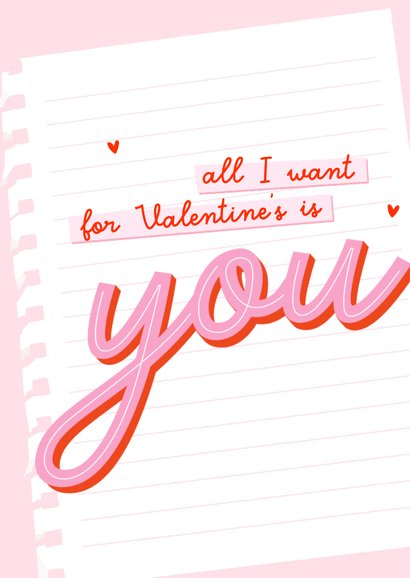 all I want
for Valentine's is
you